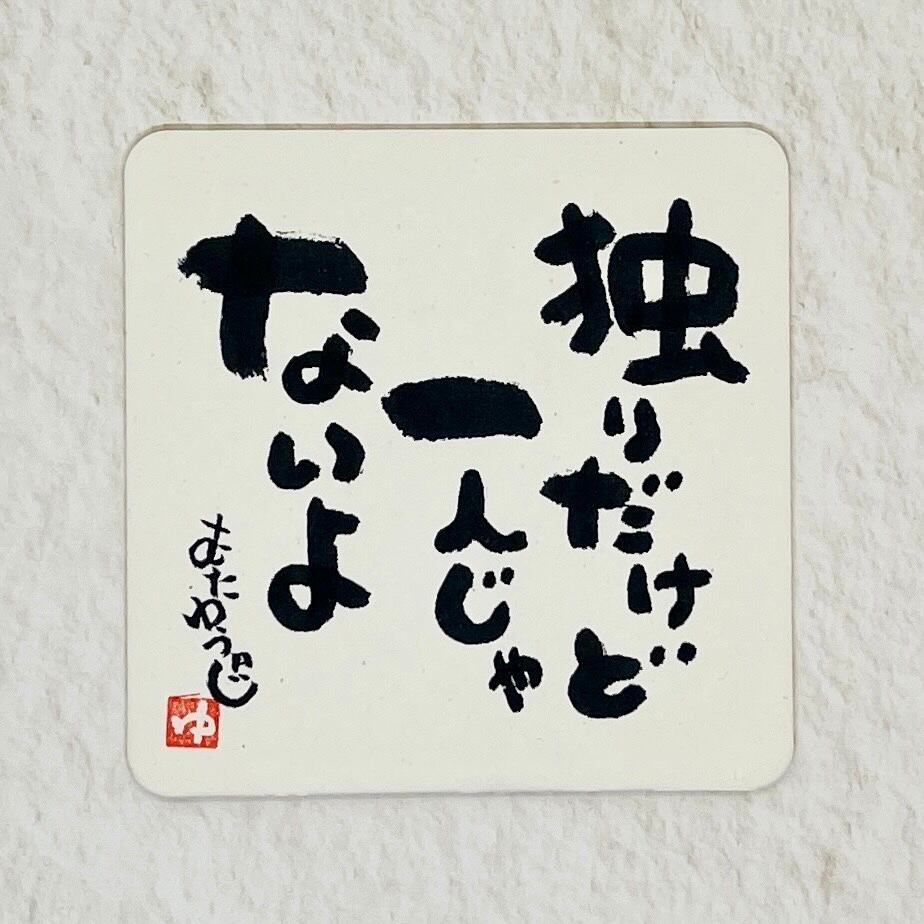 独りだけど
一人じゃ
ないよ
むたゆうじ
ゆ